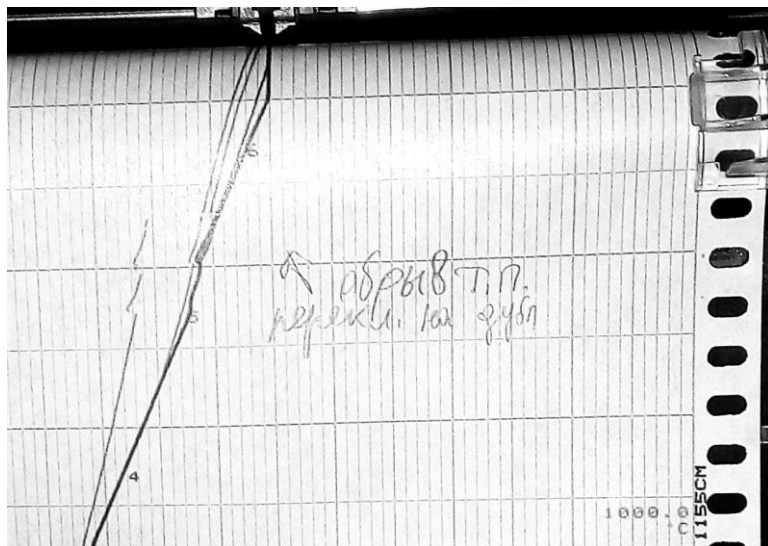 6
обрыв т.п.
перекл. на дубл
5
4
1000.0
°C
1155CM